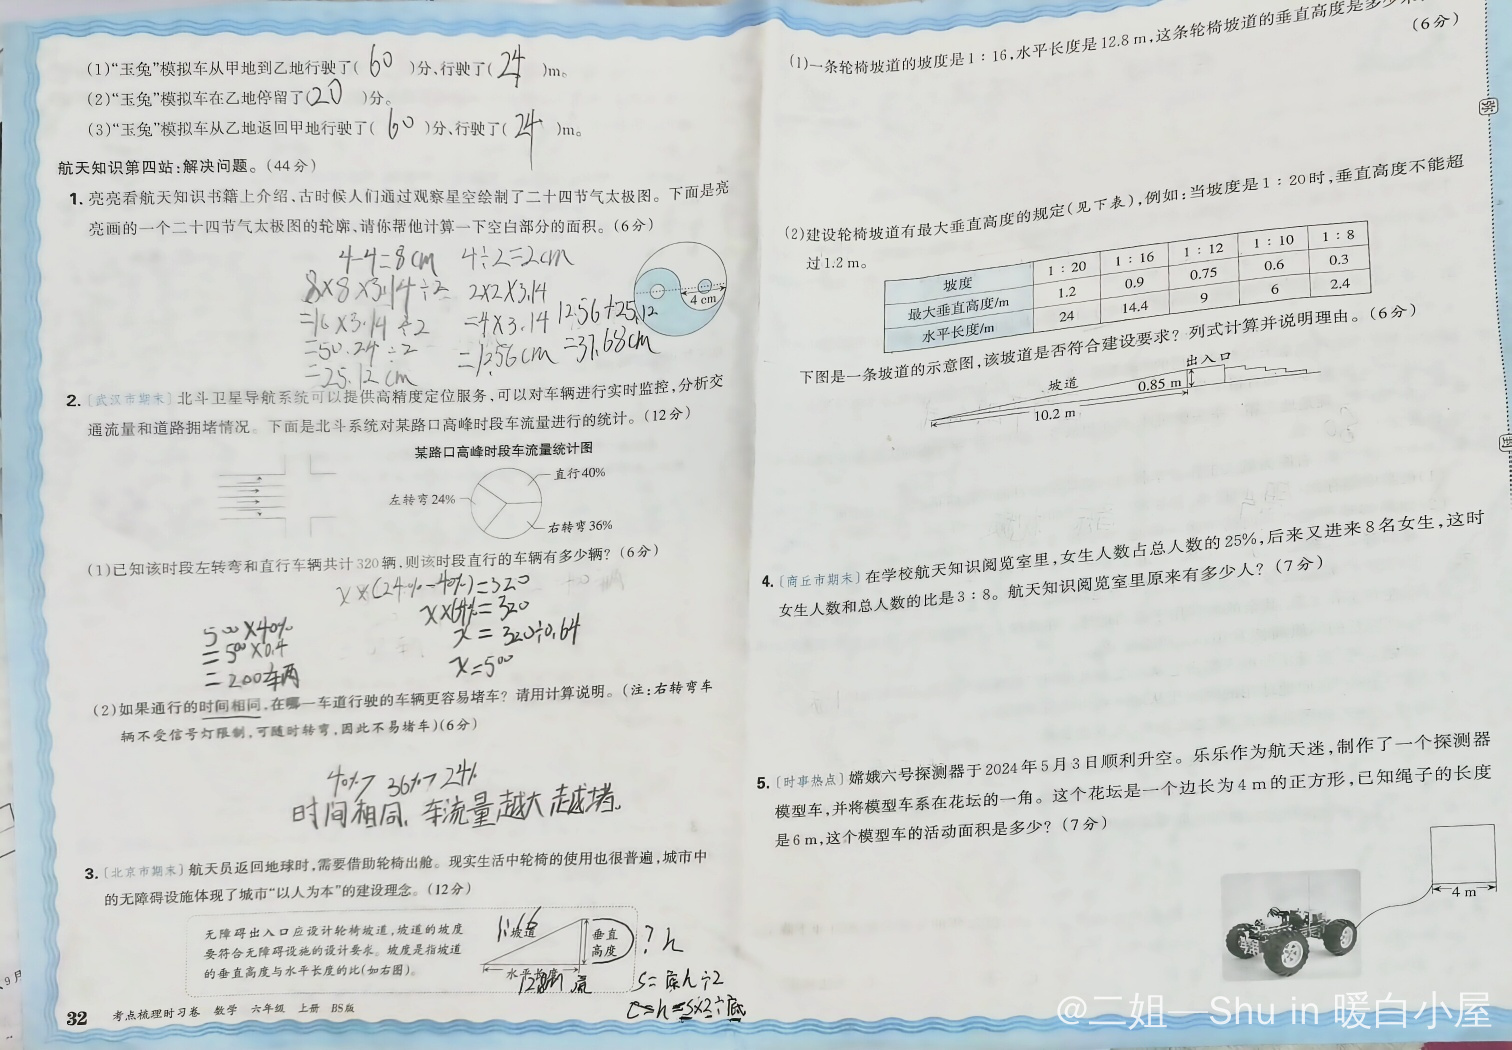 (1)“玉兔”模拟车从甲地到乙地行驶了( 60 )分、行驶了( 24 )m。
(2)“玉兔”模拟车在乙地停留了(20 )分。
(3)“玉兔”模拟车从乙地返回甲地行驶了( 60 )分、行驶了( 24 )m。
航天知识第四站:解决问题。(44分)
1. 亮亮看航天知识书籍上介绍、古时候人们通过观察星空绘制了二十四节气太极图。下面是亮
亮画的一个二十四节气太极图的轮廓、请你帮他计算一下空白部分的面积。(6分)
4-4=8cm
8×8×3.14÷2
=16×3.14÷2
=50.24÷2
=25.12cm
4÷2=2cm
2×2×3.14
=4×3.14
=12.56cm
12.56+25.12
=37.68cm
4 cm
2. [武汉市期末] 北斗卫星导航系统可以提供高精度定位服务、可以对车辆进行实时监控,分析交
通流量和道路拥堵情况。下面是北斗系统对某路口高峰时段车流量进行的统计。(12分)
某路口高峰时段车流量统计图
直行40%
左转弯24%
右转弯36%
(1)已知该时段左转弯和直行车辆共计320辆,则该时段直行的车辆有多少辆?(6分)
x×(24%-40%)=320
x×64%=320
x=320÷0.64
x=500
500×40%
=500×0.4
=200车两
(2)如果通行的时间相同,在哪一车道行驶的车辆更容易堵车?请用计算说明。(注:右转弯车
辆不受信号灯限制,可随时转弯,因此不易堵车)(6分)
40%> 36%> 24%
时间相同,车流量越大越堵。
3. [北京市期末] 航天员返回地球时,需要借助轮椅出舱。现实生活中轮椅的使用也很普遍,城市中
的无障碍设施体现了城市“以人为本”的建设理念。(12分)
无障碍出入口应设计轮椅坡道,坡道的坡度
要符合无障碍设施的设计要求。坡度是指坡道
的垂直高度与水平长度的比(如右图)。
1:16
坡道
垂直
高度
? h
水平长度
12.8m 底
S=底h÷2
h=S×2÷底
32 考点梳理时习卷 数学 六年级 上册 BS版
(1)一条轮椅坡道的坡度是1:16,水平长度是12.8 m,这条轮椅坡道的垂直高度是多少米
(6分)
(2)建设轮椅坡道有最大垂直高度的规定(见下表),例如:当坡度是1:20时,垂直高度不能超
过1.2 m。
坡度 1:20 1:16 1:12 1:10 1:8
最大垂直高度/m 1.2 0.9 0.75 0.6 0.3
水平长度/m 24 14.4 9 6 2.4
下图是一条坡道的示意图,该坡道是否符合建设要求?列式计算并说明理由。(6分)
出入口
坡道
0.85 m
10.2 m
4. [商丘市期末] 在学校航天知识阅览室里,女生人数占总人数的25%,后来又进来8名女生,这时
女生人数和总人数的比是3:8。航天知识阅览室里原来有多少人?(7分)
5. [时事热点] 嫦娥六号探测器于2024年5月3日顺利升空。乐乐作为航天迷,制作了一个探测器
模型车,并将模型车系在花坛的一角。这个花坛是一个边长为4 m的正方形,已知绳子的长度
是6 m,这个模型车的活动面积是多少?(7分)
4 m
@二姐—Shu in 暖白小屋